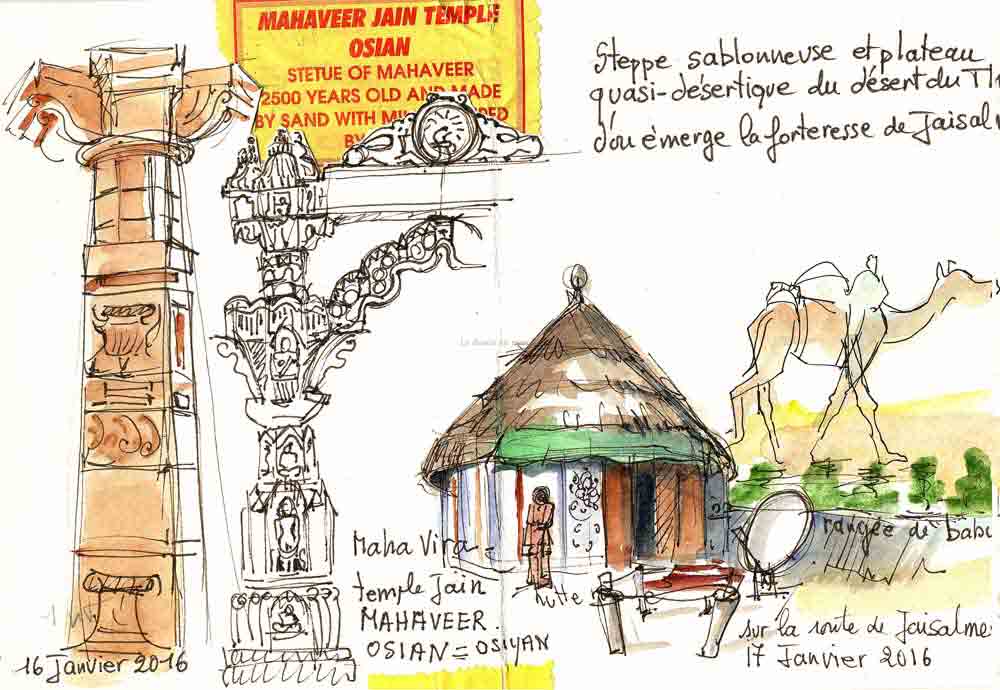 MAHAVEER JAIN TEMPLE
OSIAN
STETUE OF MAHAVEER
2500 YEARS OLD AND MADE
BY SAND WITH
Steppe sablonneuse et plateau
quasi-désertique du désert du
d'où émerge la forteresse de
Maha Vira =
temple Jain
MAHAVEER.
OSIAN = OSIYAN
hutte
rangée de
sur la route de
17 Janvier 2016
16 Janvier 2016